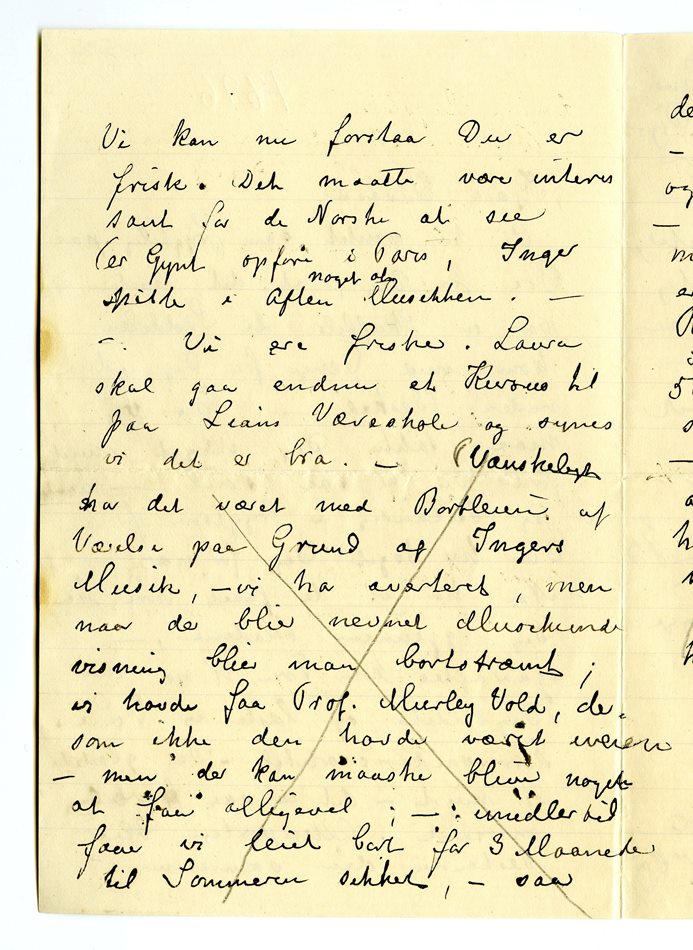 Vi kan nu forstaa Du er
frisk. Det maatte være interes
sant for de Norske at see
Per Gynt opført i Paris, Inger
noget af
spilte i Aften Musikken. —
– Vi ere friske. Laura
skal gaa endnu et Kursus til
paa Væveskole og synes
vi det er bra. — (Vanskeligt
har det været med Bortleien af
Værelse paa Grund af Ingers
Musik, – vi ha averteret, men
naar de blir nevnet Musikunde
visning blir man bortskræmt;
vi havde faa Prof. Murley Vold, der
som ikke den havde været iveien
– men der kan maaske blive noget
at faa alligevel ; – : imidlertid
faar vi leiet bort for 3 Maaneder
til Sommeren sikkert, – saa
de
og